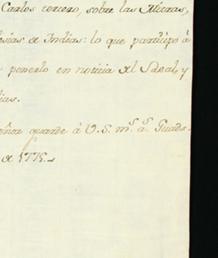 Carlos tercero, sobre las Mitras,
de Indias: lo que participo á
ponerlo en noticia del Deal, y
guarde á V.S. m.s a.s Guada-
de 1775.